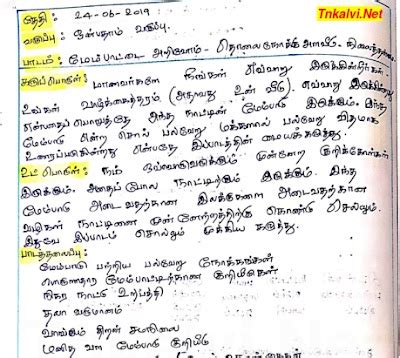 Tnkalvi.Net
தேதி : 24-06-2019
வகுப்பு : ஒன்பதாம் வகுப்பு.
பாடம் : மேம்பாட்டை அறிவோம் - தொலைநோக்கு அளவீடு - நிலைத்தன்மை
கருப்பொருள் : மாணவர்களே நீங்கள் எவ்வாறு இருக்கின்றீர்கள்.
உங்கள் வாழ்க்கைத்தரம் (அதாவது உன் வீடு) எவ்வாறு இருக்கிறது
என்பதைப் பொறுத்தே அந்த நாட்டின் மேம்பாடு இருக்கும். இந்த
மேம்பாடு என்ற சொல் பல்வேறு மக்களால் பல்வேறு விதமாக
உரைப்படுகின்றது என்பதே இப்பாடத்தின் மையக்கருத்து.
உட்பொருள் : நம் ஒவ்வொருவருக்கும் முன்னேற குறிக்கோள்கள்
இருக்கும். அதைப் போல நாட்டிற்கும் இருக்கும். இந்த
மேம்பாடு அடைவதற்கான இலக்குகளை அடைவதற்கான
வழிகள் நாட்டினை முன்னேற்றத்திற்கு கொண்டு செல்லும்.
இதுவே இப்பாடம் சொல்லும் முக்கிய கருத்து.
பாடத்தலைப்பு :
மேம்பாடு பற்றிய பல்வேறு நோக்கங்கள்
பொருளாதார மேம்பாட்டிற்கான குறியீடுகள்
நிகர நாட்டு உற்பத்தி
தலா வருமானம்
வாங்கும் திறன் சமநிலை
மனித வள மேம்பாடு குறியீடு